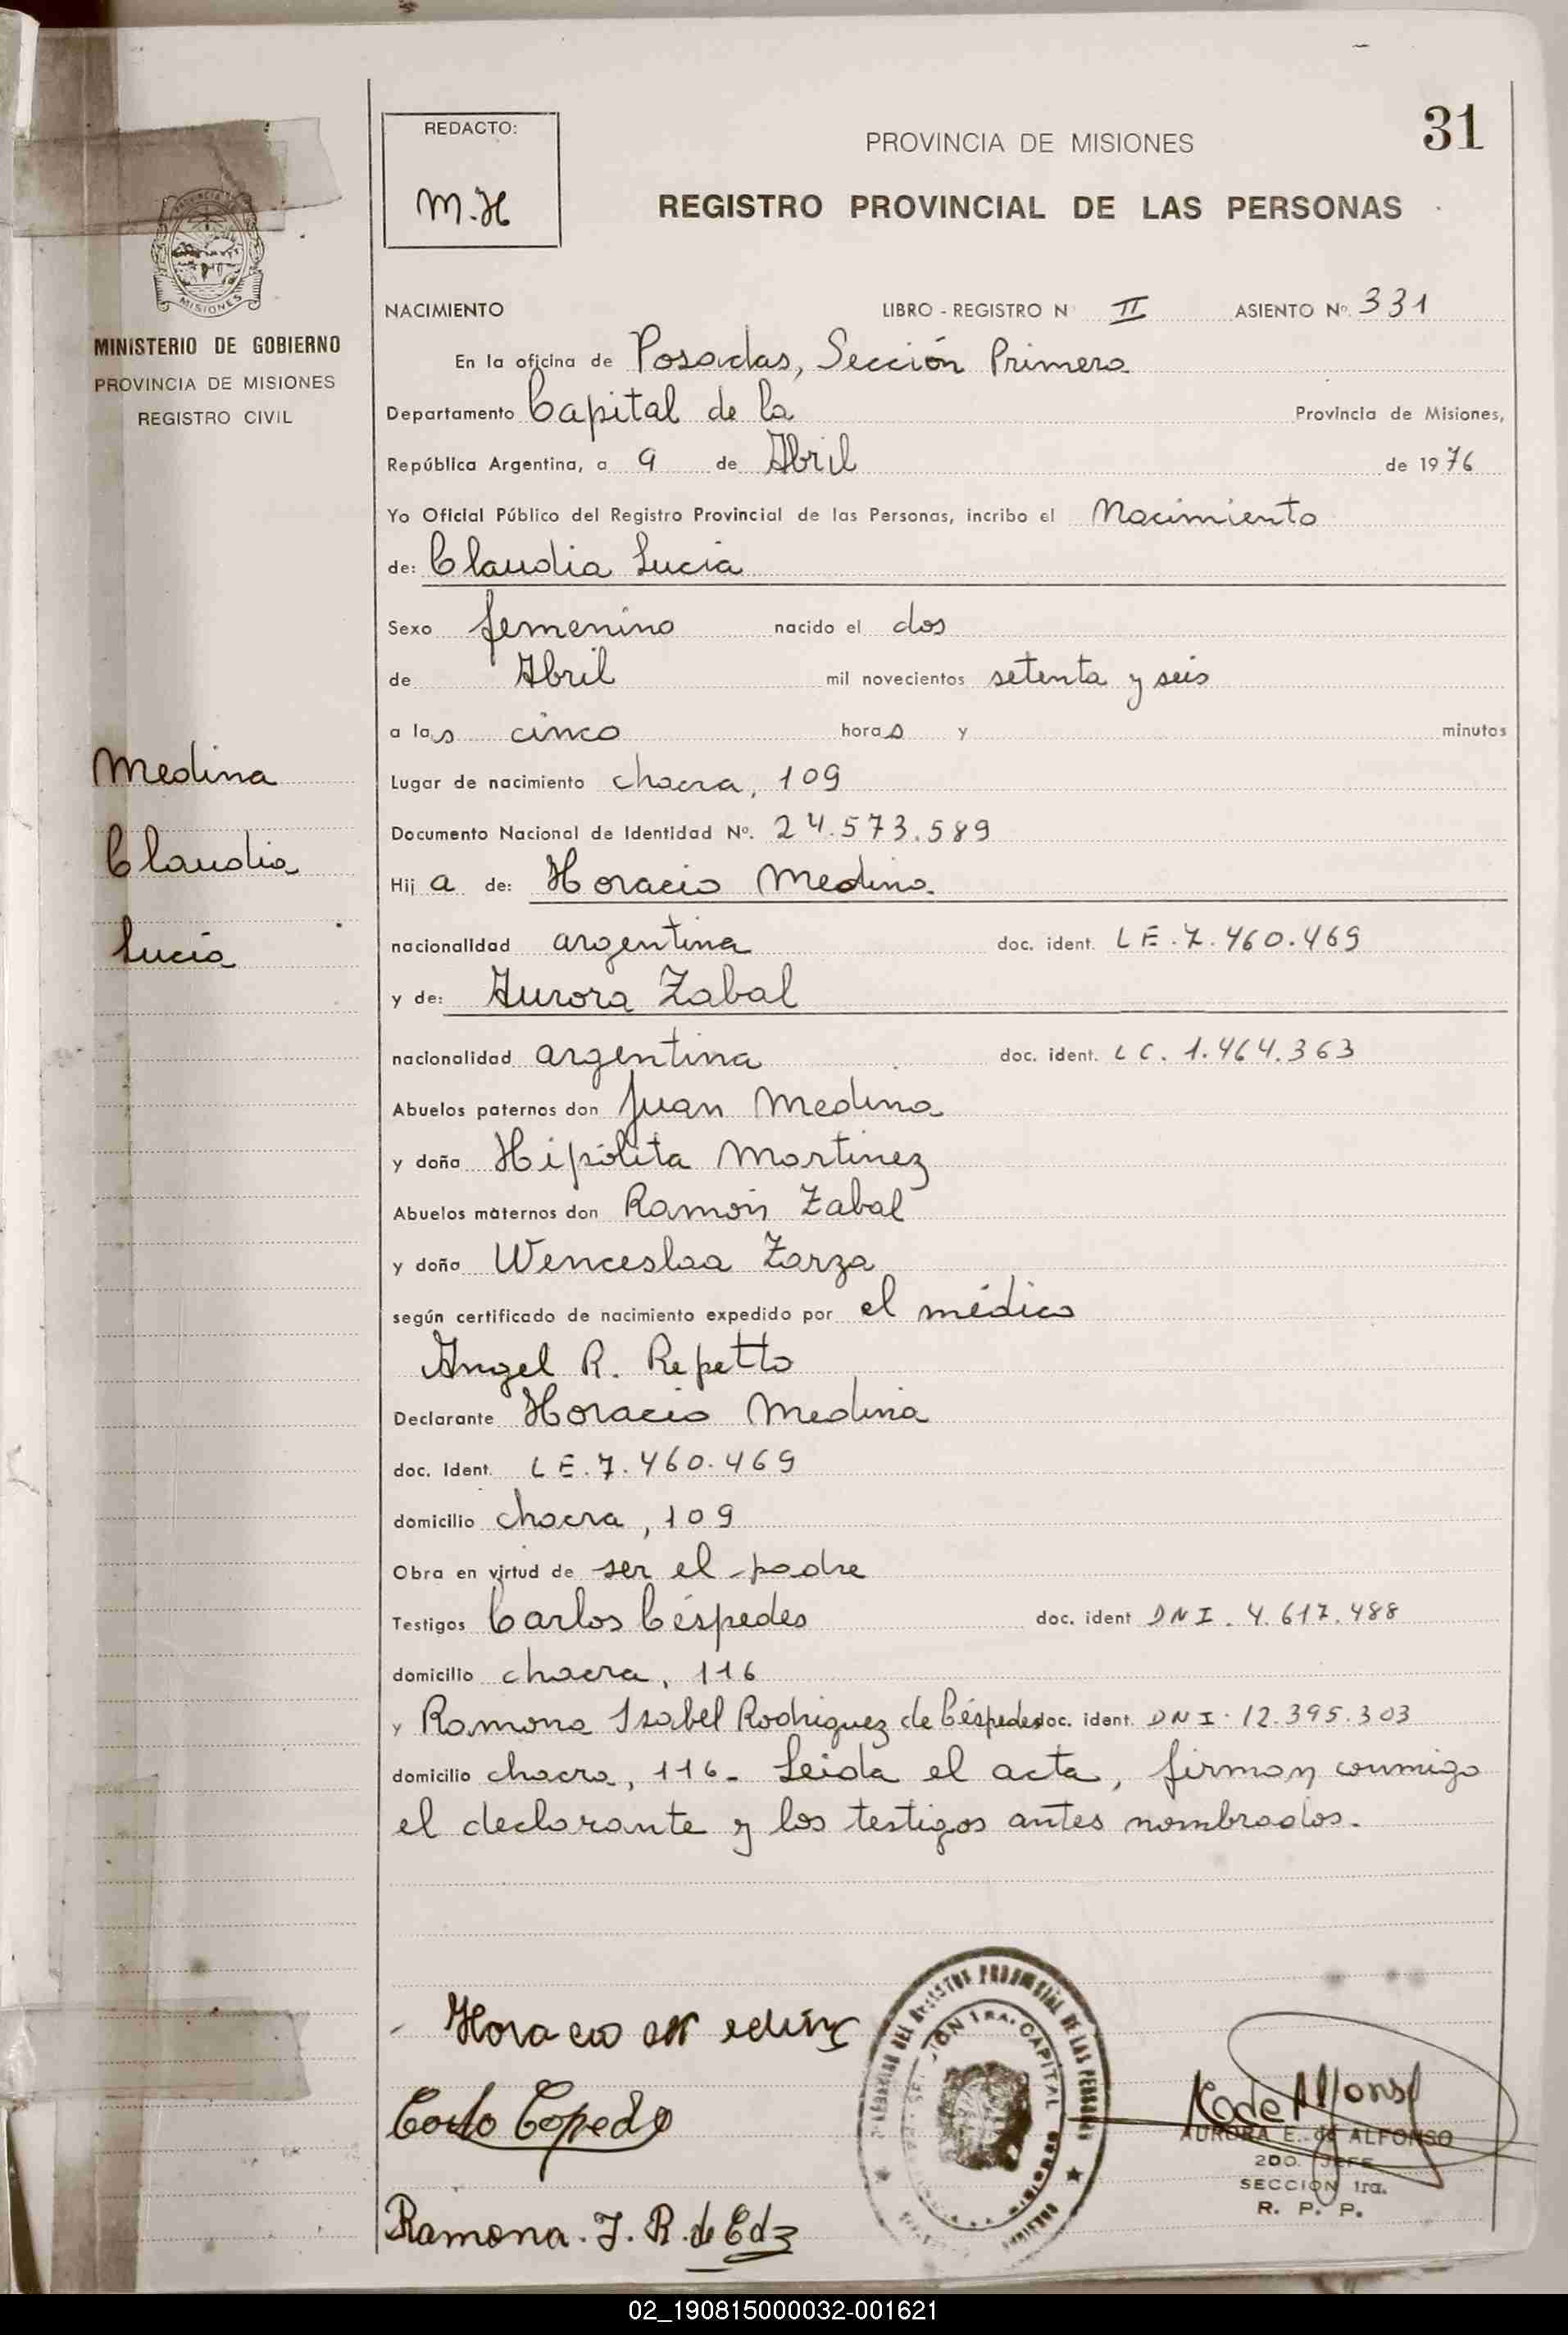 31
REDACTO:
M.H
PROVINCIA DE MISIONES
REGISTRO PROVINCIAL DE LAS PERSONAS
MISIONES
MINISTERIO DE GOBIERNO
PROVINCIA DE MISIONES
REGISTRO CIVIL
NACIMIENTO LIBRO - REGISTRO N II ASIENTO Nº 331
En la oficina de Posadas, Sección Primera
Departamento Capital de la Provincia de Misiones,
República Argentina, a 9 de Abril de 1976
Yo Oficial Público del Registro Provincial de las Personas, incribo el Nacimiento
de: Claudia Lucia
Sexo femenino nacido el dos
de Abril mil novecientos setenta y seis
a las cinco horas y minutos
Medina
Claudia
Lucía
Lugar de nacimiento chacra, 109
Documento Nacional de Identidad Nº. 24.573.589
Hija de: Horacio Medina.
nacionalidad argentina doc. ident. LE.7.460.469
y de: Aurora Zabal
nacionalidad argentina doc. ident. LC. 1.464.363
Abuelos paternos don Juan Medina
y doña Hipólita Martinez
Abuelos maternos don Ramón Zabal
y doña Wenceslaa Zarza
según certificado de nacimiento expedido por el médico
Angel R. Repetto
Declarante Horacio Medina
doc. Ident. LE.7.460.469
domicilio chacra, 109
Obra en virtud de ser el padre
Testigos Carlos Céspedes doc. ident DNI. 4.617.488
domicilio chacra, 116
y Ramona Isabel Rodriguez de Céspedes doc. ident. DNI. 12.395.303
domicilio chacra, 116- Leida el acta, firman conmigo
el declarante y los testigos antes nombrados.
Horacio Medina
Ramona. I. R. de
AURORA E. de ALFONSO
2DO. JEFE
SECCION 1ra.
R. P. P.
02_190815000032-001621